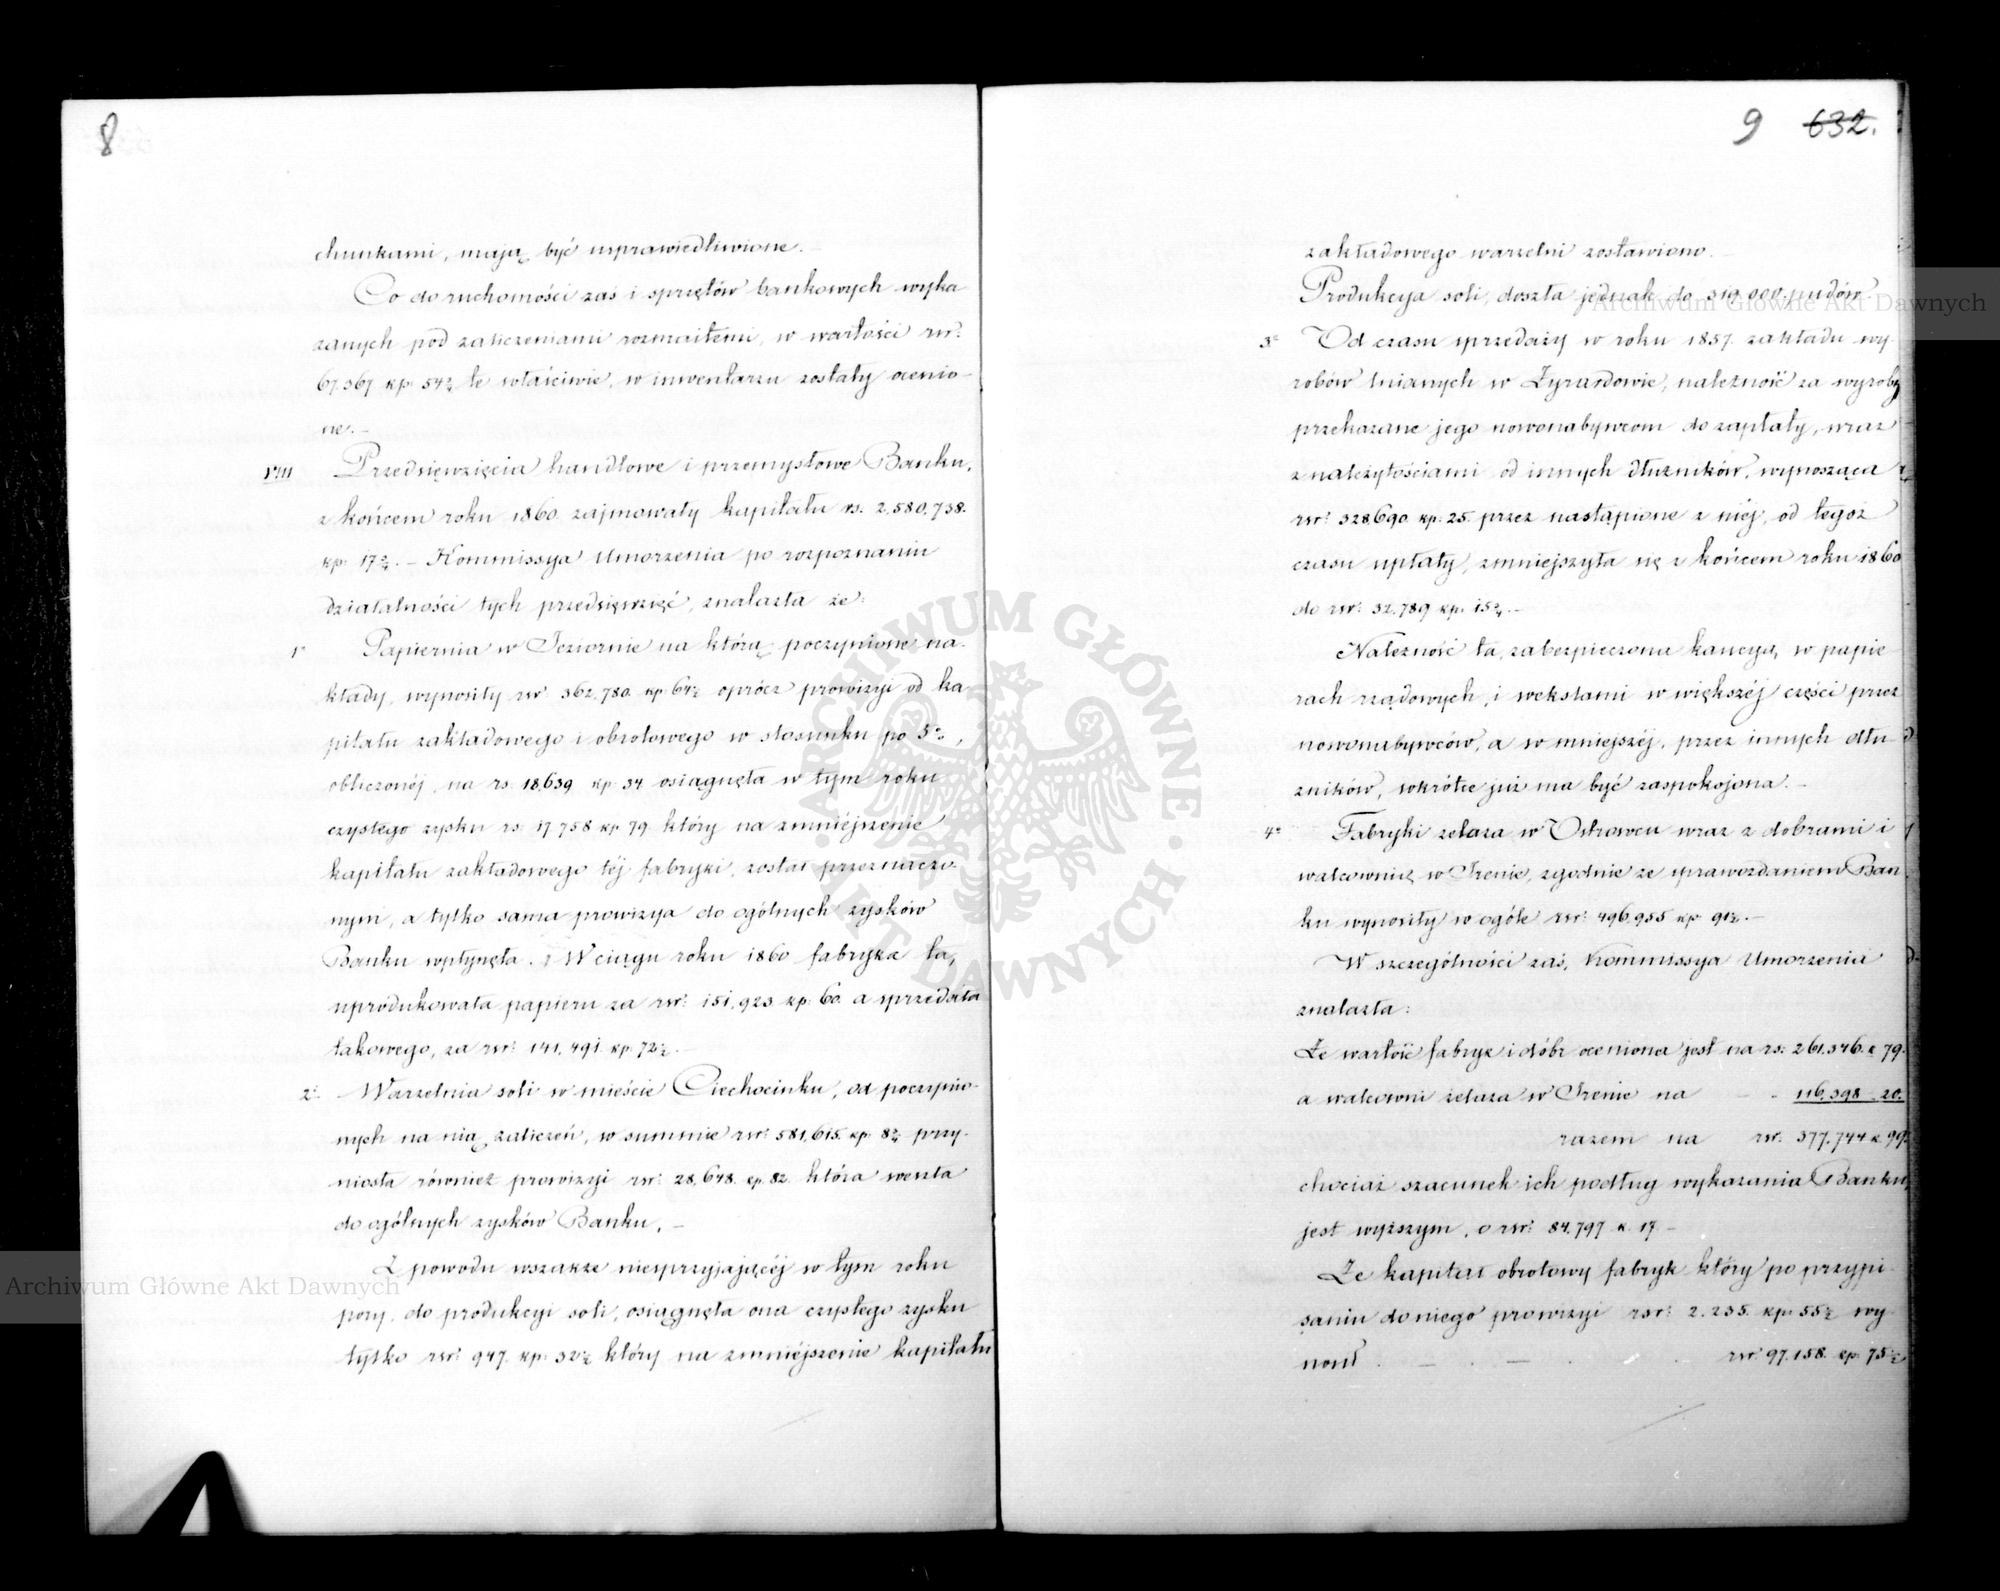 8
chunkami, mają być usprawiedliwione. –
Co do ruchomości zaś i sprzętów bankowych wyka
zanych pod zaliczeniami rozmaitemi, w wartości rsr:
67,367 kp 54½ te właściwie, w inwentarzu zostały ocenio–
ne. –
VIII Przedsięwzięcia handlowe i przemysłowe Banku,
z końcem roku 1860 zajmowały kapitału rs. 2,580,738.
kp: 17½. – Kommissya Umorzenia po rozpoznaniu
działalności tych przedsięwzięć, znalazła że:
1° Papiernia w Jeziornie na którą poczynione na-
kłady, wynosiły rsr: 362,780 kp 64½ oprócz prowizyi od ka-
pitału zakładowego i obrotowego w stosunku po 5%,
obliczonéj, na rs: 18,639 kp. 34 osiągnęła w tym roku
czystego zysku rs: 17,758 kp 79 który na zmniéjszenie
kapitału zakładowego téj fabryki, został przeznaczo-
nym, a tylko sama prowizya do ogólnych zysków
Banku wpłynęła. W ciągu roku 1860 fabryka ta,
uprodukowała papieru za rsr: 151,923 kp: 60. a sprzedała
takowego, za rsr: 141,491 kp: 72½. –
2° Warzelnia soli w mieście Ciechocinku, od poczynio-
nych na nią zaliczeń, w summie rsr: 581,615. kp: 8½ przy-
niosła również prowizyi rsr: 28,648. kp. 82. która weszła
do ogólnych zysków Banku. –
Z powodu wszakże niesprzyjającéj w tym roku
pory, do produkcyi soli, osiągnęła ona czystego zysku
tylko rsr: 947. kp: 32½ który na zmniéjszenie kapitału
9 632.
zakładowego warzelni zostawiono. –
Produkcya soli, doszła jednak do 319,000 pudów.
3° Od czasu sprzedaży w roku 1857. zakładu wy-
robów lnianych w Żyrardowie, należność za wyroby
przekazane jego nowonabywcom do zapłaty, wraz
z należytościami od innych dłużników, wynosząca
rsr: 328,690 kp: 25. przez nastąpione z niéj, od tegoż
czasu upłaty, zmniejszyła się z końcem roku 1860
do rsr: 32,789 kp: 15½. –
Należność ta, zabezpieczona kaucyą, w papie-
rach rządowych, i wekslami w większéj części przez
nowonabywców, a w mniejszéj, przez innych dłu-
żników, wkrótce już ma być zaspokojona. –
4° Fabryki żelaza w Ostrowcu wraz z dobrami i
walcownią w Irenie, zgodnie ze sprawozdaniem Ban-
ku wynosiły w ogóle rsr: 496,955 kp 91½. –
W szczególności zaś, Kommissya Umorzenia
znalazła:
Że wartość fabryk i dóbr oceniona jest na rs: 261,346. k 79.
a walcowni żelaza w Irenie na – - 116,398 20.
razem na rsr. 377,744 k 99.
chociaż szacunek ich podług wykazania Banku,
jest wyższym, o rsr: 84,797 k. 17 –
Że kapitał obrotowy fabryk który po przypi-
saniu do niego prowizyi rsr: 2,235. kp: 55½ wy-
nosił . – . – . . . rsr: 97,158. kp: 75½
Archiwum Główne Akt Dawnych
Archiwum Główne Akt Dawnych
ARCHIWUM GŁÓWNE AKT DAWNYCH